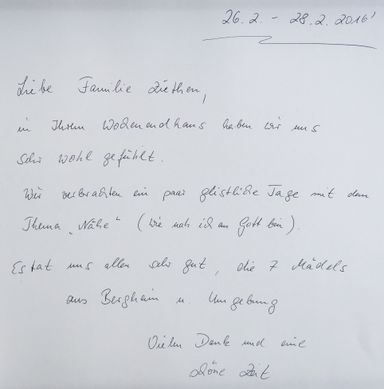 26.2. - 28.2. 2016
Liebe Familie Ziethen,
in Ihrem Wochenendhaus haben wir uns
sehr wohl gefühlt.
Wir verbrachten ein paar geistliche Tage mit dem
Thema „Nähe“ (wie nah ich an Gott bin).
Es tat uns allen sehr gut, die 7 Mädels
aus Bergheim u. Umgebung
Vielen Dank und eine
schöne Zeit